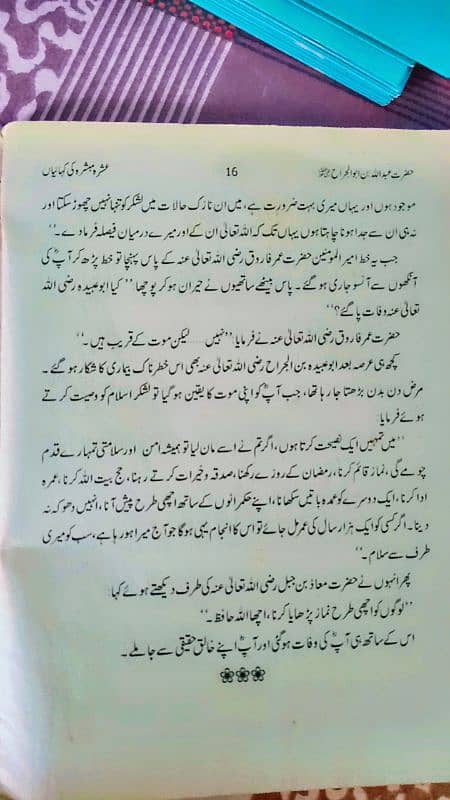 عشرہ مبشرہ کی کہانیاں 16 حضرت عبداللہ بن ابو الجراح رضی اللہ عنہ
موجود ہوں اور یہاں میری بہت ضرورت ہے، میں ان نازک حالات میں لشکر کو تنہا نہیں چھوڑ سکتا اور
نہ ہی ان سے جدا ہونا چاہتا ہوں یہاں تک کہ اللہ تعالیٰ ان کے اور میرے درمیان فیصلہ فرما دے۔‘‘
جب یہ خط امیر المومنین حضرت عمر فاروق رضی اللہ تعالیٰ عنہ کے پاس پہنچا تو خط پڑھ کر آپؓ کی
آنکھوں سے آنسو جاری ہو گئے۔ پاس بیٹھے ساتھیوں نے حیران ہو کر پوچھا ’’کیا ابو عبیدہ رضی اللہ
تعالیٰ عنہ وفات پا گئے؟‘‘
حضرت عمر فاروق رضی اللہ تعالیٰ عنہ نے فرمایا ’’نہیں ...... لیکن موت کے قریب ہیں۔‘‘
کچھ ہی عرصہ بعد ابو عبیدہ بن الجراح رضی اللہ تعالیٰ عنہ بھی اس خطرناک بیماری کا شکار ہو گئے۔
مرض دن بدن بڑھتا جا رہا تھا، جب آپؓ کو اپنی موت کا یقین ہو گیا تو لشکر اسلام کو وصیت کرتے
ہوئے فرمایا:
’’میں تمہیں ایک نصیحت کرتا ہوں، اگر تم نے اسے مان لیا تو ہمیشہ امن اور سلامتی تمہارے قدم
چومے گی، نماز قائم کرنا، رمضان کے روزے رکھنا، صدقہ و خیرات کرتے رہنا، حج بیت اللہ کرنا، عمرہ
ادا کرنا، ایک دوسرے کو عمدہ باتیں سکھانا، اپنے حکمرانوں کے ساتھ اچھی طرح پیش آنا، انہیں دھوکہ نہ
دینا۔ اگر کسی کو ایک ہزار سال کی عمر مل جائے تو اس کا انجام یہی ہوگا جو آج میرا ہو رہا ہے، سب کو میری
طرف سے سلام۔‘‘
پھر انہوں نے حضرت معاذ بن جبل رضی اللہ تعالیٰ عنہ کی طرف دیکھتے ہوئے کہا:
’’لوگوں کو اچھی طرح نماز پڑھایا کرنا، اچھا اللہ حافظ۔‘‘
اس کے ساتھ ہی آپؓ کی وفات ہو گئی اور آپؓ اپنے خالق حقیقی سے جا ملے۔